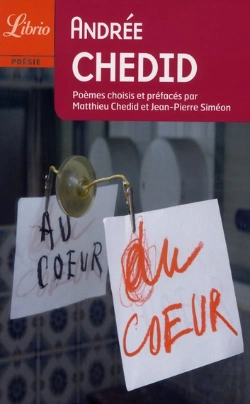 Librio
POÉSIE
ANDRÉE
CHEDID
Poèmes choisis et préfacés par
Matthieu Chedid et Jean-Pierre Siméon
AU
COEUR
du
COEUR